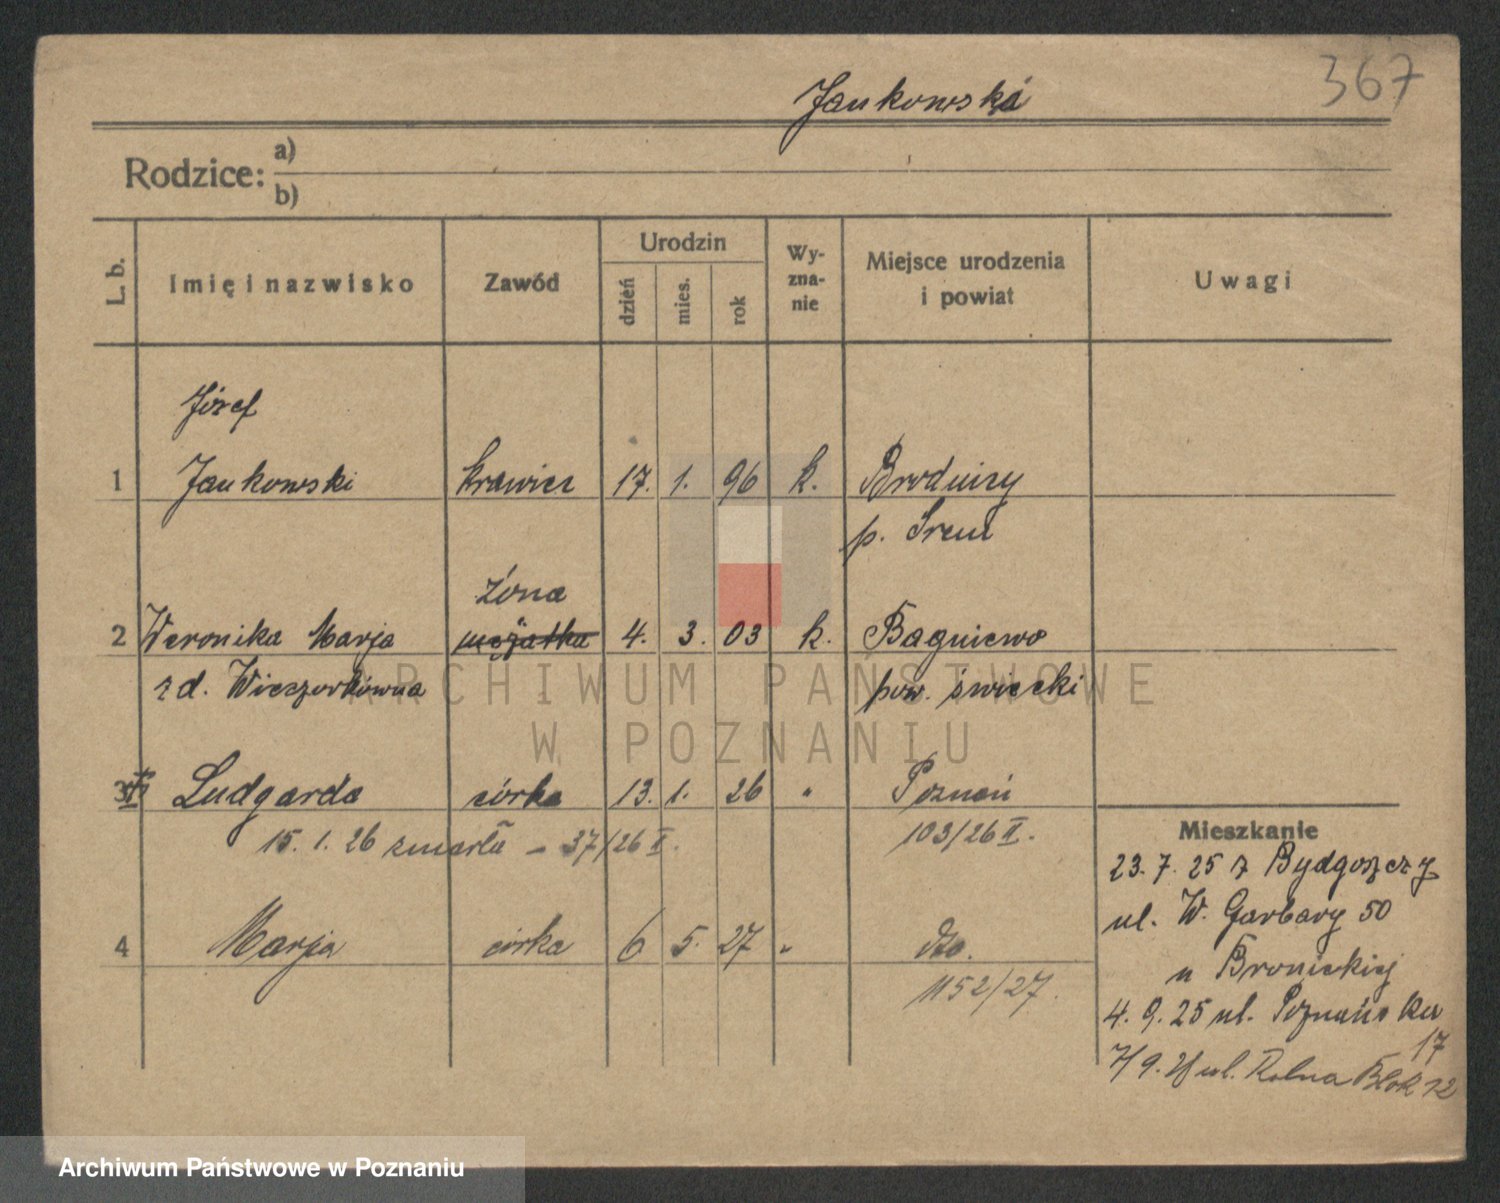 367
Jankowski
Rodzice: a)
b)
L. b. Imię i nazwisko Zawód Urodzin dzień mies. rok Wyznanie Miejsce urodzenia i powiat Uwagi
Józef
1 Jankowski krawiec 17. 1. 96 k. Brodnicy
p. Śrem
żona
2 Weronika Marja mężatka 4. 3. 03 k. Bagniewo
zd. Wieczorkówna pow. świecki
ARCHIWUM PAŃSTWOWE
W POZNANIU
3 Ludgarda córka 13. 1. 26 " Poznań
15. 1. 26 zmarła – 37/26 II. 103/26 II.
4 Marja córka 6 5. 27 " dto.
1152/27.
Mieszkanie
23. 7. 25 z Bydgoszczy
ul. W. Garbary 50
u Bronickiej
4. 9. 25 ul. Poznańska
17
ul. Rolna Blok 12
Archiwum Państwowe w Poznaniu